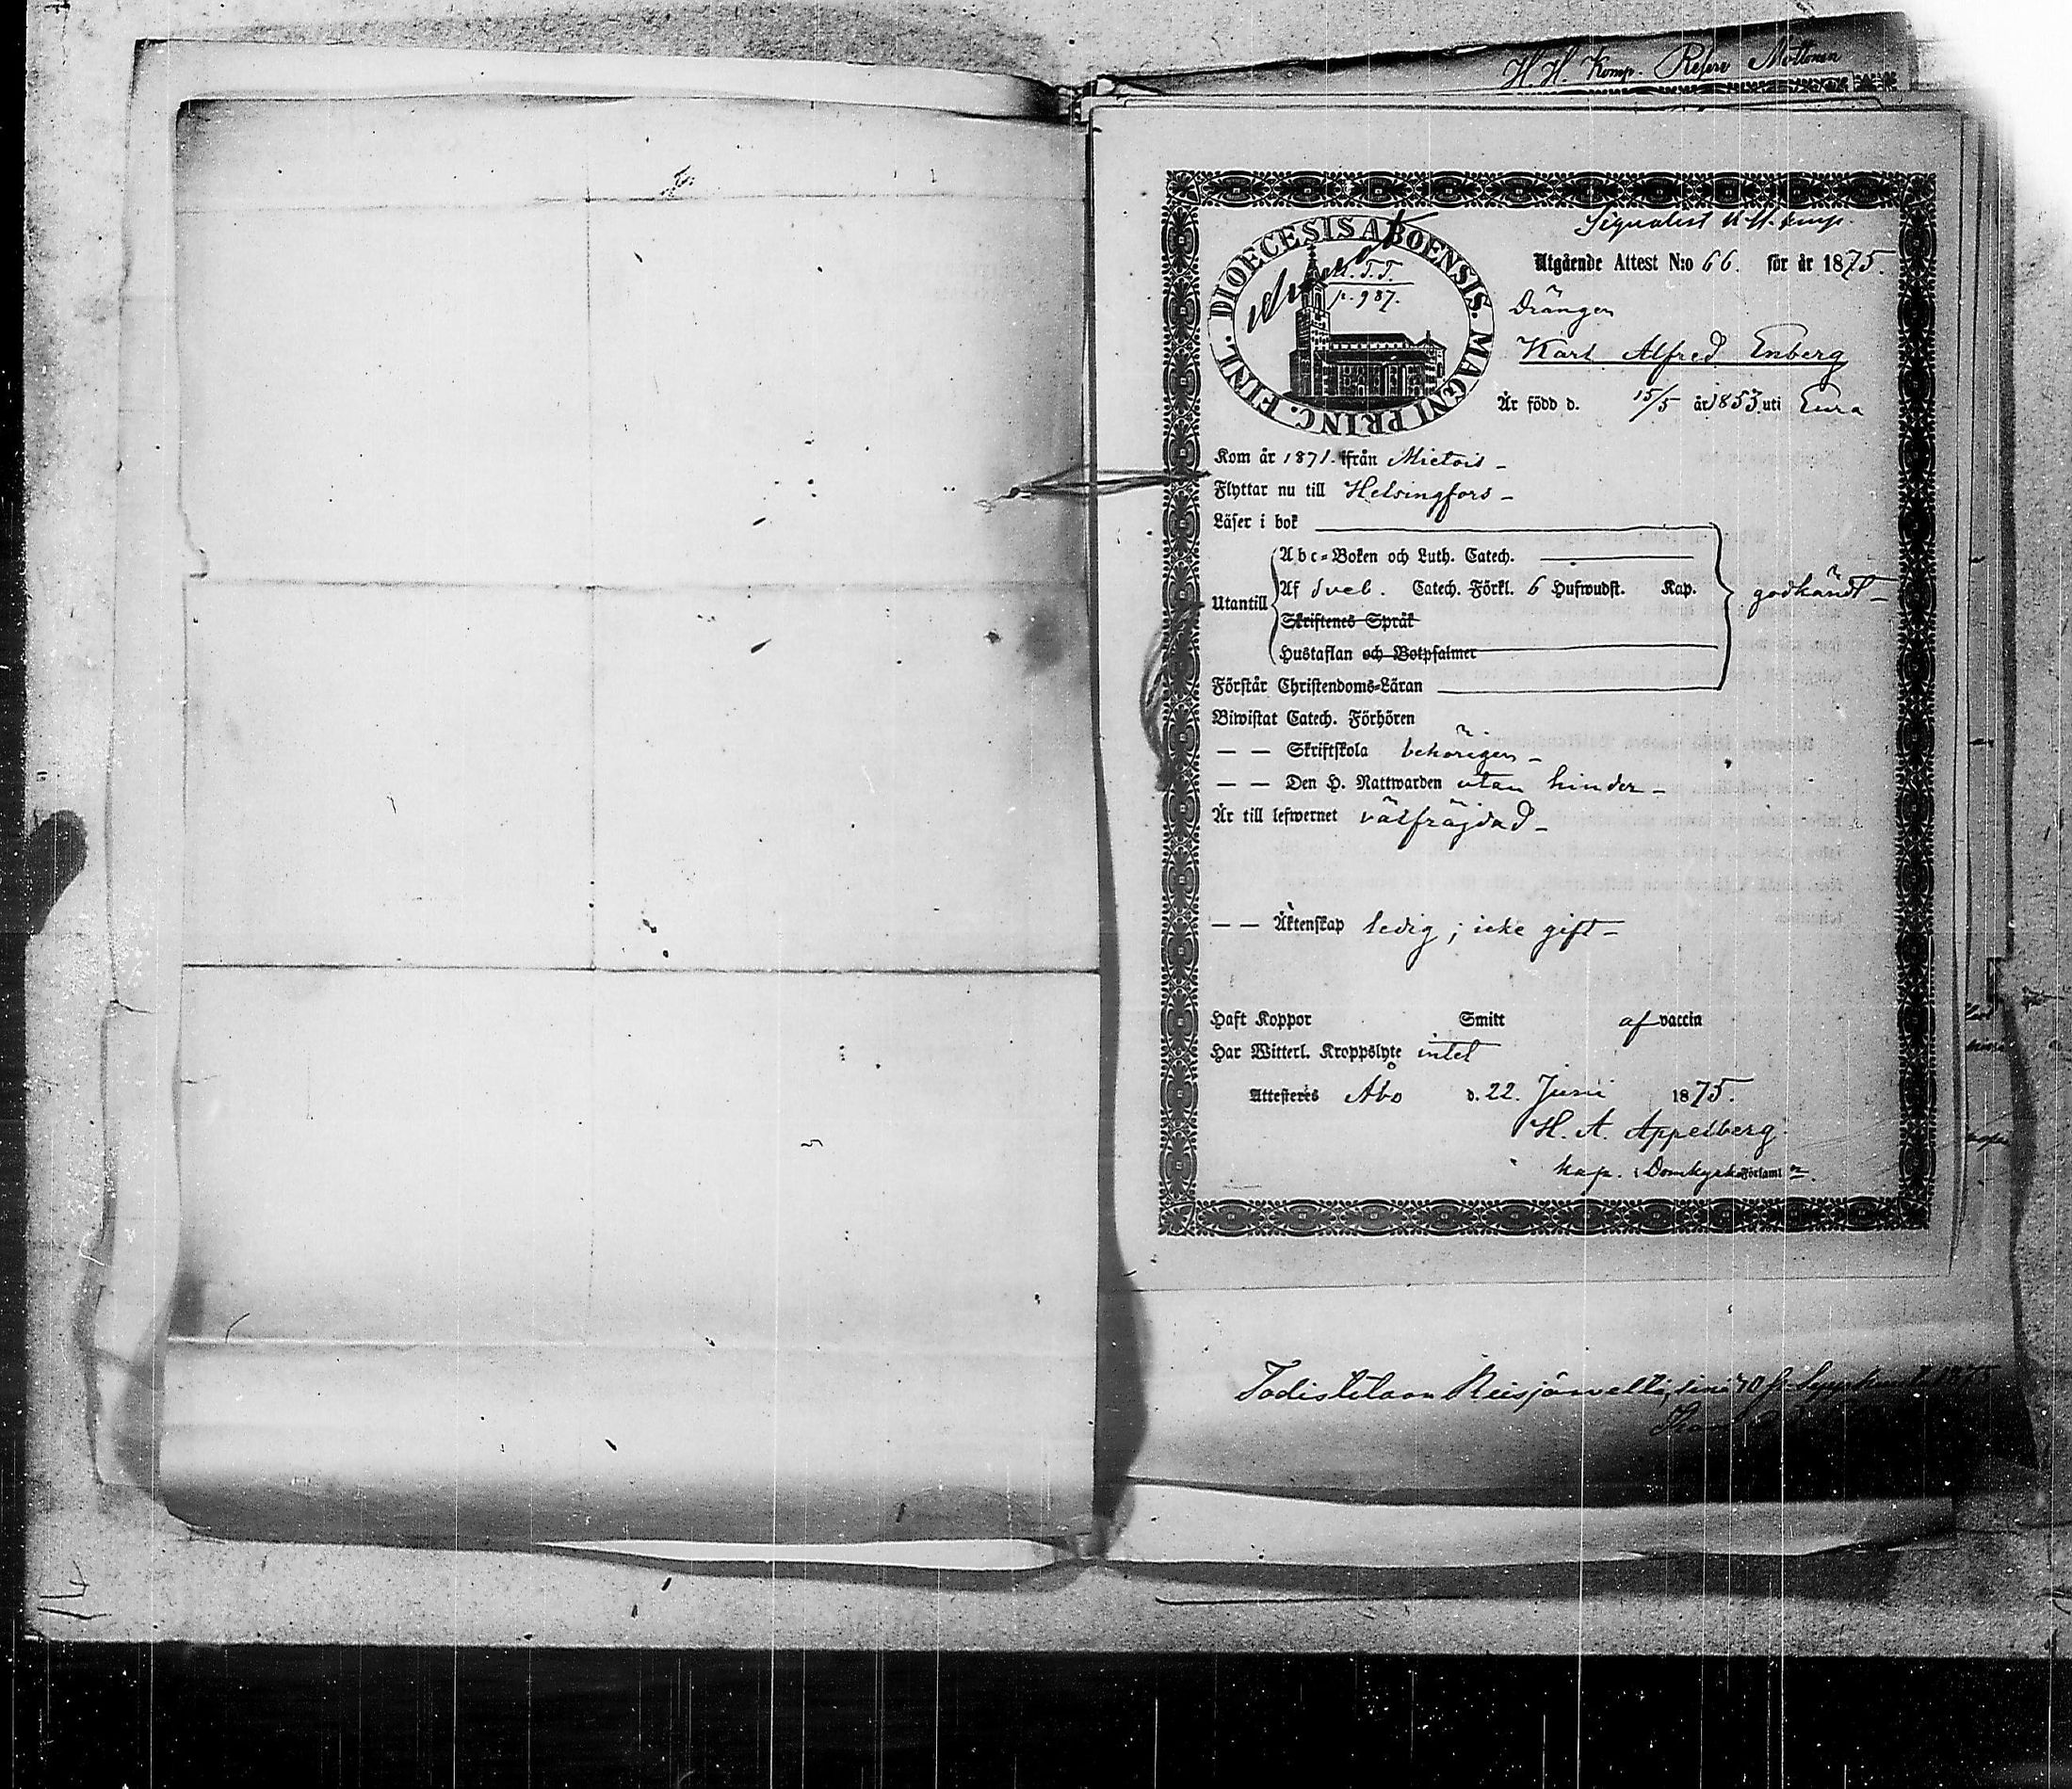 H. H. Komp. Reserv Möttönen
Signalist H. H. komp.
DIOECESIS ABOENSIS. MAGNI PRINC. FINL.
T. T.
p. 987.
Utgående Attest N:o 66. för år 1875.
Drängen
Karl Alfred Enberg
Är född d. 15/5 år 1853 uti Eura
Kom år 1871. ifrån Mietois –
Flyttar nu till Helsingfors –
Läser i bok
Abc-Boken och Luth. Catech.
Utantill
Af Sveb. Catech. Förkl. 6 Hufwudst. Kap.
godkändt –
Skriftenes Språk
Hustaflan och Botpsalmer
Förstår Christendoms-Läran
Biwistat Catech. Förhören
— — Skriftskola behörigen –
— — Den H. Nattwarden utan hinder –
Är till lefwernet välfräjdad –
— — Äktenskap ledig; icke gift –
Haft Koppor Smitt af vaccin
Har Witterl. Kroppslyte intet
Attesteres Åbo d. 22. Juni 1875.
H. A. Appelberg.
kap. i Domkyrko Förlaml n.
Todistetaan Reisjärvellä, 10 p. Syyskuuta 1875